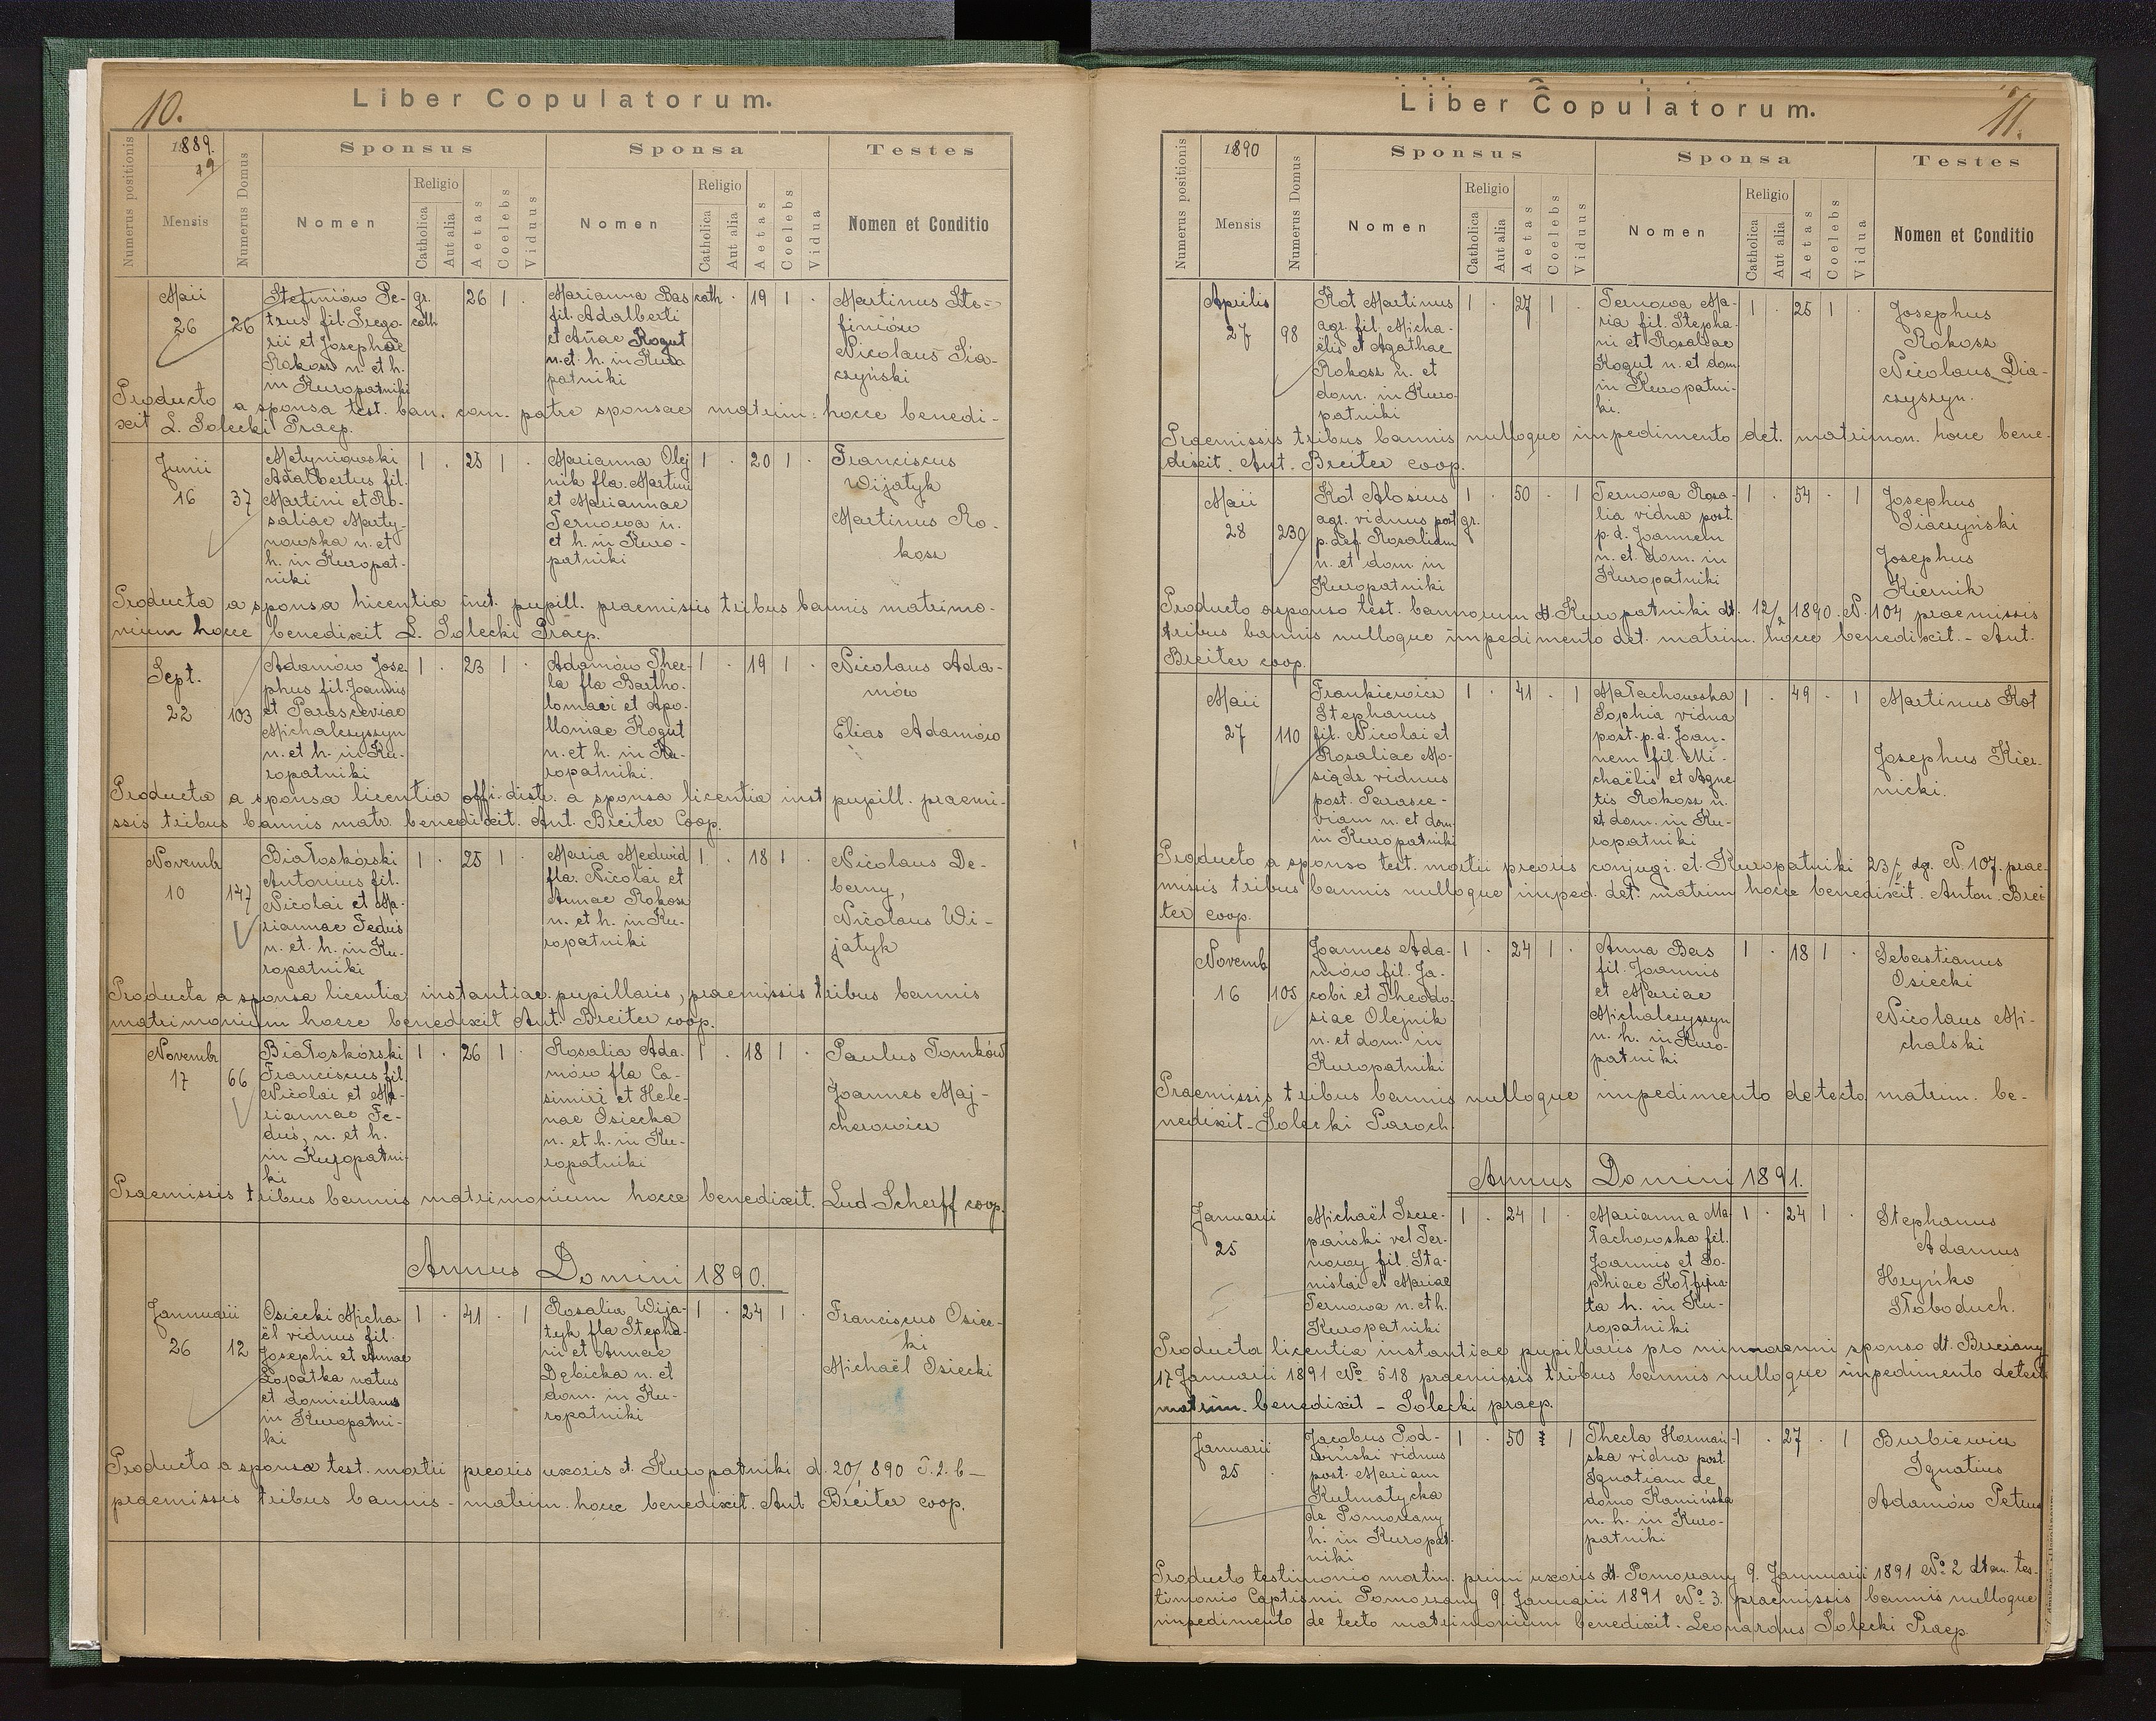 10.
Liber Copulatorum.
Numerus positionis
1889.
19
Mensis
Numerus Domus
Sponsus
Sponsa
Testes
Nomen
Religio
Catholica
Aut alia
Aetas
Coelebs
Viduus
Nomen
Religio
Catholica
Aut alia
Aetas
Coelebs
Vidua
Nomen et Conditio
Maii
26
26
Stefiniów Pe-
trus fil. Grego-
rii et Josephae
Rokosz n. et h.
in Kuropatniki
gr.
cath
26 1 .
Marianna Bas
fil. Adalberti
et Añae Rogut
n. et h. in Kuro
patniki
cath . 19 1 .
Martinus Ste-
finiów
Nicolaus Sia-
czyński
Producto a sponsa test. ban. com. patre sponsae matrim: hocce benedi-
xit L. Solecki Praep.
Junii
16
37
Metyniowski
Adalbertus fil.
Martini et Ro-
saliae Marty-
nowska n. et
h. in Kuropat-
niki
1 . 25 1 .
Marianna Olej
nik fla. Martini
et Mariannae
Ternowa n.
et h. in Kuro-
patniki
1 . 20 1 .
Franciscus
Wijatyk
Martinus Ro-
kosz
Producta a sponsa licentia inst. pupill. praemissis tribus bannis matrimo-
nium hocce benedixit L. Solecki Praep.
Sept.
22
103
Adamów Jose
phus fil. Joannis
et Parasceviae
Michalczyszyn
n. et h. in Ku-
ropatniki
1 . 23 1 .
Adamów Thec-
la fla Bartho-
lomaei et Apo-
lloniae Kogut
n. et h. in Ku-
ropatniki.
1 . 19 1 .
Nicolaus Ada-
mów
Elias Adamów
Producta a sponsa licentia offi. distr. a sponsa licentia inst pupill. praemi-
ssis tribus bannis matr. benedixit. Ant. Breiter Coop.
Novemb
10
147
Białoskórski
Antonius fil.
Nicolai et Ma-
riannae Feduś
n. et. h. in Ku-
ropatniki
1 . 25 1 .
Maria Medwid
fla. Nicolai et
Annae Rokosz
n. et h. in Ku-
ropatniki
1 . 18 1 .
Nicolaus De-
berny,
Nicolaus Wi-
jatyk
Producta a sponsa licentia instantiae pupillaris, praemissis tribus bannis
matrimonium hocce benedixit Ant. Breiter coop.
Novembr
17
66
Białoskórski
Franciscus fil.
Nicolai et Ma-
riannae Fe-
duś, n. et h.
in Kuropatni-
ki
1 . 26 1 .
Rosalia Ada-
mów fla Ca-
simiri et Hele-
nae Osiecka
n. et h. in Ku-
ropatniki
1 . 18 1 .
Paulus Tomków
Joannes Maj-
cherowicz
Praemissis tribus bannis matrimonium hocce benedixit. Lud Scherff coop.
Annus Domini 1890.
Jannuarii
26
12
Osiecki Micha
ël viduus fil.
Josephi et Annae
Łopatka natus
et domicillans
in Kuropatni-
ki
1 . 41 . 1
Rosalia Wija-
tyk fla Stepha-
ni et Annae
Dębicka n. et
dom. in Ku-
ropatniki
1 . 24 1 .
Franciscus Osiec-
ki
Michaël Osiecki
Producta a sponsa test. mortii preoris uxoris d. Kuropatniki d. 20/1 890 T. 2. b -
praemissis tribus bannis - matrim. hocce benedixit. Ant Breiter coop.
11.
Liber Copulatorum.
Numerus positionis
1890
Mensis
Numerus Domus
Sponsus
Sponsa
Testes
Nomen
Religio
Catholica
Aut alia
Aetas
Coelebs
Viduus
Nomen
Religio
Catholica
Aut alia
Aetas
Coelebs
Vidua
Nomen et Conditio
Aprilis
27
98
Kot Martinus
agr. fil. Micha-
ëlis et Agathae
Rokosz n. et
dom. in Kuro
patniki
1 . 27 1 .
Ternowa Ma-
ria fil. Stepha-
ni et Rosaliae
Kogut n. et dom
in Kuropatni-
ki.
1 . 25 1 .
Josephus
Rokosz
Nicolaus Dia-
czyszyn.
Praemissis tribus bannis nulloque impedimento det. matrimon. hocce bene-
dixit. Ant. Breiter coop.
Maii
28
230
Kot Alosius
agr. viduus post
p. def. Rosaliam
n. et dom in
Kuropatniki
1
gr.
. 50 . 1
Ternowa Rosa-
lia vidua post.
p. d. Joannem
n. et. dom. in
Kuropatniki
1 . 54 . 1
Josephus
Siaczyński
Josephus
Kiernik
Producto a sponso test. bannorum dt Kuropatniki dt. 12/ 1890. N. 104 praemissis
tribus bannis nulloque impedimento det. matrim. hocce benedixit. - Ant.
Breiter coop.
Maii
27
110
Frankiewicz
Stephanus
fil. Nicolai et
Rosaliae Mo-
siądz viduus
post. Parasce-
viam n. et dom.
in Kuropatniki
1 . 41 . 1
Małachowska
Sophia vidua
post. p. d. Joan-
nem fil. Mi-
chaëlis et Agne-
tis Rokosz n.
et dom. in Ku-
ropatniki
1 . 49 . 1
Martinus Kot
Josephus Kier-
nicki.
Producto a sponso test. mortii preoris conjugi. et. Kuropatniki 23/V dg. N. 107. prae-
missis tribus bannis nulloque imped. det. matrim hocce benedixit. Anton. Brei
ter coop.
Novemb
16
105
Joannes Ada-
mów fil. Ja-
cobi et Theodo-
siae Olejnik
n. et dom. in
Kuropatniki
1 . 24 1 .
Anna Bas
fil. Joannis
et Mariae
Michalczyszyn
n. h. in Kuro-
patniki
1 . 18 1 .
Sebastianus
Osiecki
Nicolaus Mi-
chalski
Praemissis tribus bannis nulloque impedimento detecto matrim. be-
nedixit - Solecki Paroch.
Annus Domini 1891.
Januarii
25
Michaël Szcze-
pański vel Ter-
nowy fil. Sta-
nislai et Mariae
Ternowa n. et h.
Kuropatniki
1 . 24 1 .
Marianna Ma
łachowska fil.
Joannis et So-
phiae
ta h. in Ku-
ropatniki
1 . 24 1 .
Stephanus
Adamus
Heyńko
Słoboduch.
Producta licentia instantiae pupillaris pro minorenni sponso dt. Brzeżany
17 Januarii 1891 No. 518 praemissis tribus bannis nulloque impedimento detect
matrim. benedixit - Solecki praep.
Januarii
25
Jacobus Pod-
wiński viduus
post. Mariam
Kulmatycka
de Pomorzany
h. in Kuropat-
niki
1 . 50 1
Thecla Hormań-
ska vidua post.
Ignatiam de
domo Kamińska
n. h. in Kuro-
patniki
1 . 27 . 1
Burbiewicz
Ignatius
Adamów Petrus
Producto testimonio mortin. primi uxoris dt. Pomorzany 9. Jannuarii 1891 No 2 dtem. tes-
timonio Captismi Pomorzany 9. Januarii 1891 No 3. praemissis bannis nulloque
impedimento de tecto matrimonium benedixit. Leonardus Solecki Praep.